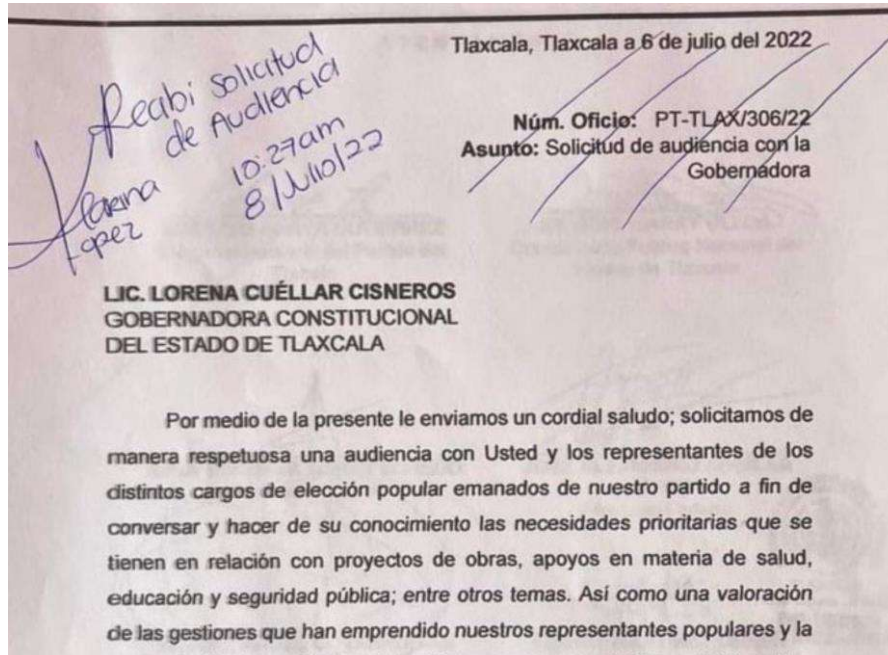 Tlaxcala, Tlaxcala a 6 de julio del 2022
Reabi Solicitud
de Audiencia
10:27am
8/Julio/22
Karina
Lopez
Núm. Oficio: PT-TLAX/306/22
Asunto: Solicitud de audiencia con la
Gobernadora
LIC. LORENA CUÉLLAR CISNEROS
GOBERNADORA CONSTITUCIONAL
DEL ESTADO DE TLAXCALA
Por medio de la presente le enviamos un cordial saludo; solicitamos de
manera respetuosa una audiencia con Usted y los representantes de los
distintos cargos de elección popular emanados de nuestro partido a fin de
conversar y hacer de su conocimiento las necesidades prioritarias que se
tienen en relación con proyectos de obras, apoyos en materia de salud,
educación y seguridad pública; entre otros temas. Así como una valoración
de las gestiones que han emprendido nuestros representantes populares y la